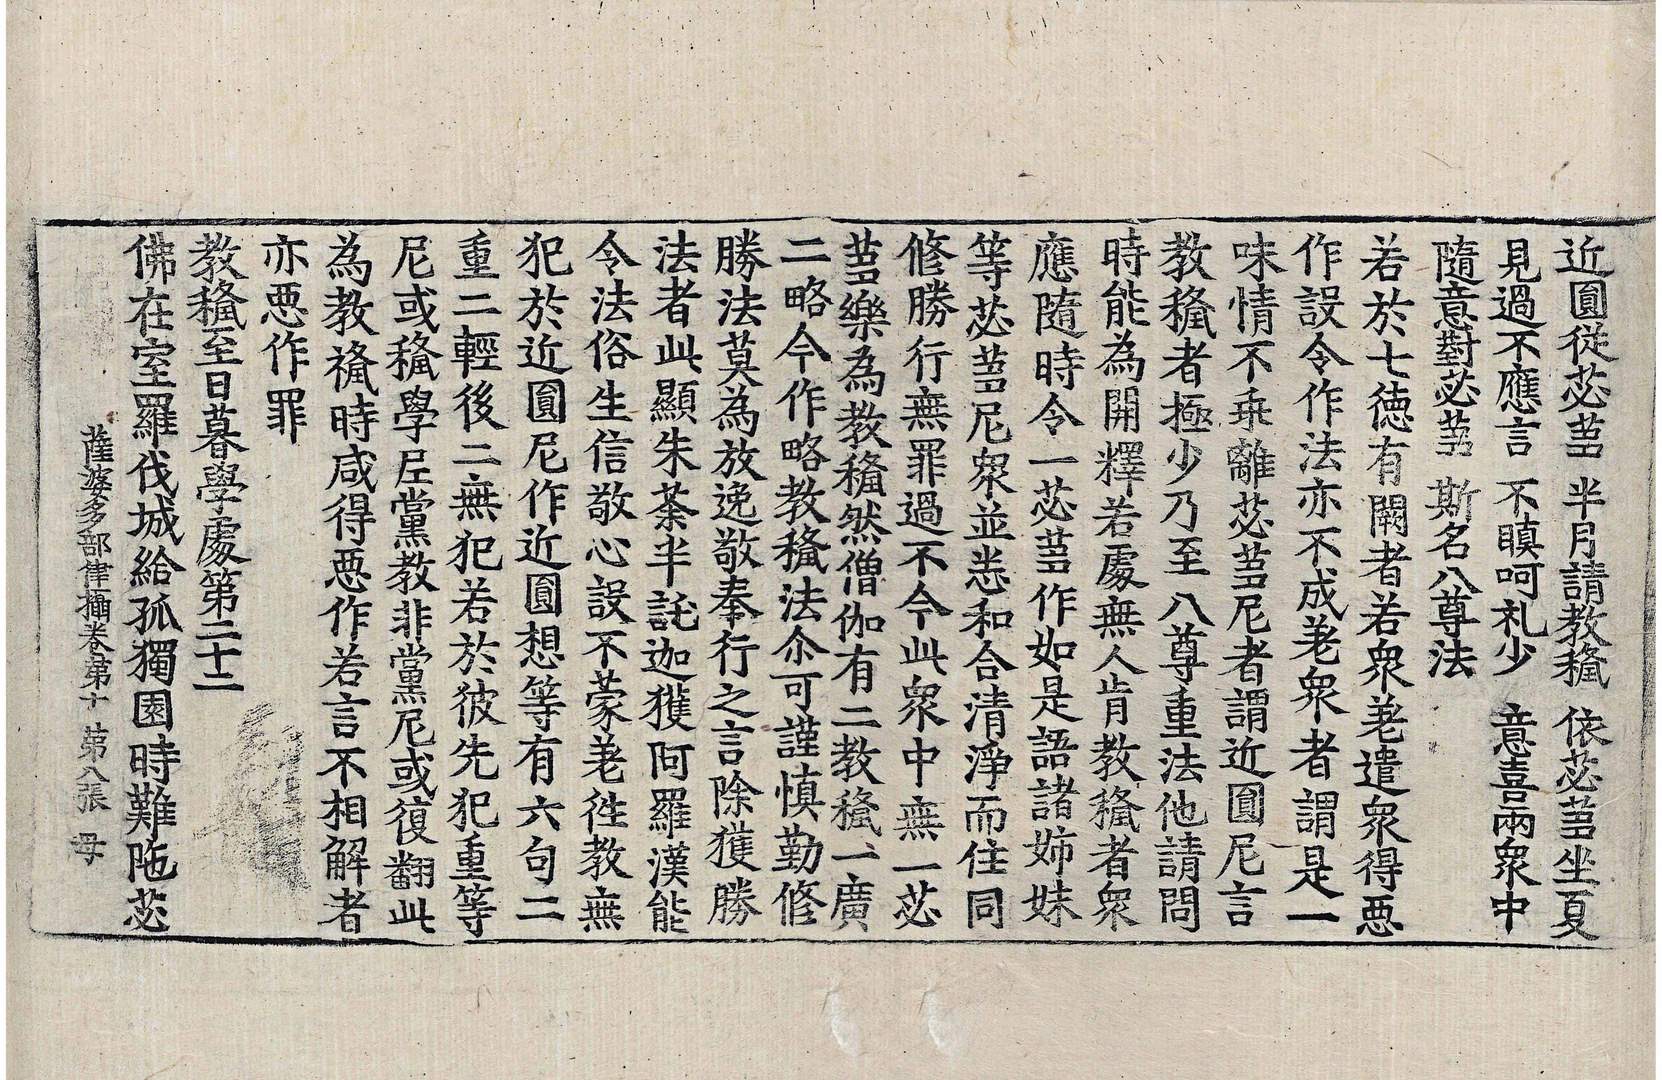 近圓從苾芻　半月請教𥡳　依苾芻坐夏
見過不應言　不瞋呵礼少　意喜兩衆中
隨意對苾芻　斯名八尊法
若於七德有闕者若衆差遣衆得惡
作設令作法亦不成差衆者謂是一
味情不乖離苾芻尼者謂近圓尼言
教𥡳者極少乃至八尊重法他請問
時能為開釋若處無人肯教𥡳者衆
應隨時令一苾芻作如是語諸姉妹
等苾芻尼衆並悉和合清淨而住同
修勝行無罪過不今此衆中無一苾
芻樂為教𥡳然僧伽有二教𥡳一廣
二略今作略教𥡳法尒可謹慎勤修
勝法莫為放逸敬奉行之言除獲勝
法者此顯朱荼半託迦獲阿羅漢能
令法俗生信敬心設不蒙差徃教無
犯於近圓尼作近圓想等有六句二
重二輕後二無犯若於彼先犯重等
尼或𥡳學尼黨教非黨尼或復翻此
為教𥡳時咸得惡作若言不相解者
亦惡作罪
教𥡳至日暮學處第二十二
佛在室羅伐城給孤獨園時難陁苾
薩婆多部律攝卷第十　第八張　母